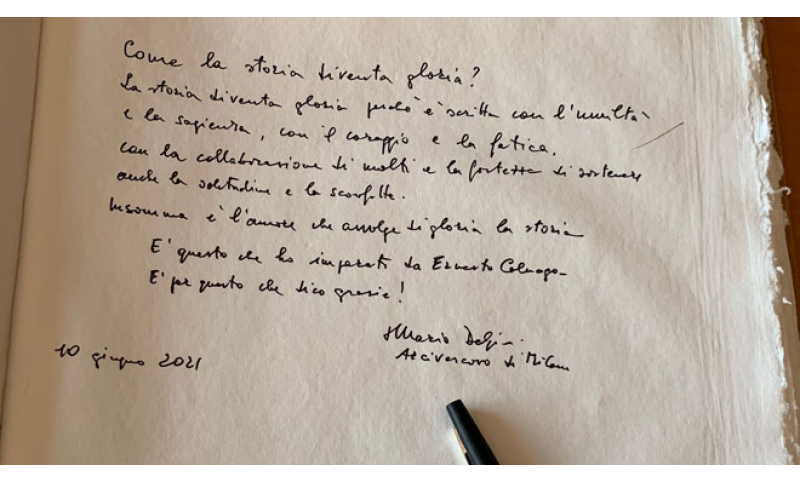 Come la storia diventa gloria?
La storia diventa gloria perché è scritta con l'umiltà
e la sapienza, con il coraggio e la fatica,
con la collaborazione di molti e la fortezza di sostenere
anche la solitudine e le sconfitte.
Insomma è l'amore che avvolge di gloria la storia
E' questo che ho imparato da Ernesto Colnago
E' per questo che dico grazie!
+Mario Delpini
Arcivescovo di Milano
10 giugno 2021